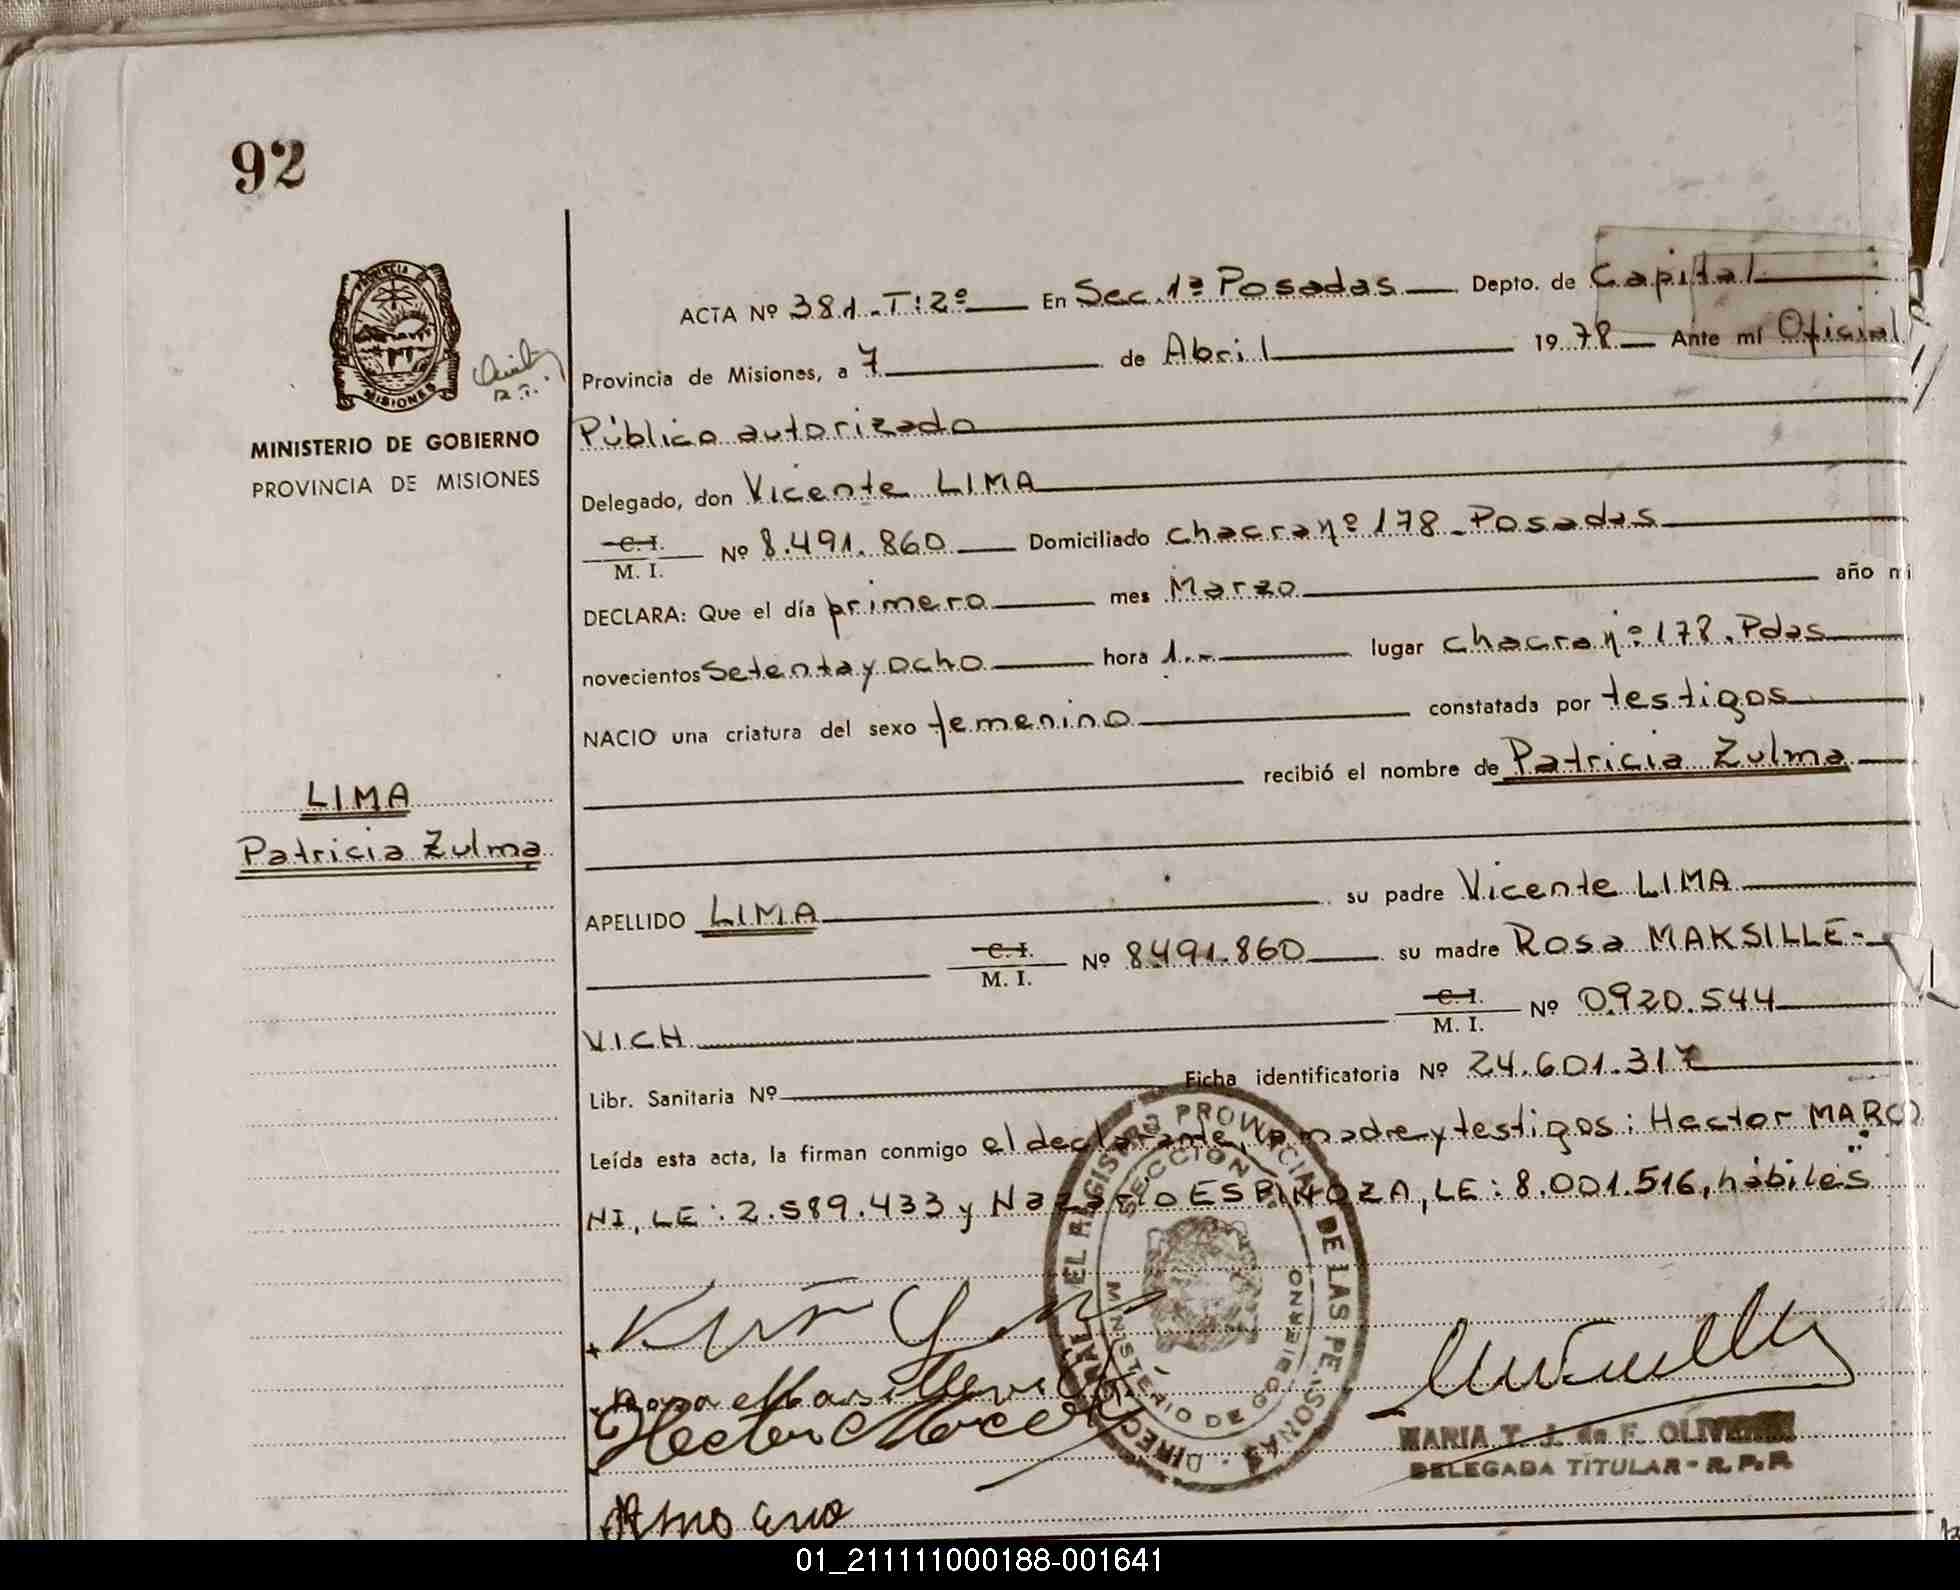 92
PROVINCIA DE
MISIONES
MINISTERIO DE GOBIERNO
PROVINCIA DE MISIONES
LIMA
Patricia Zulma
ACTA Nº 381.T:2º En Sec.1ª Posadas Depto. de Capital
Provincia de Misiones, a 7 de Abril 1978 Ante mí Oficial
Público autorizado
Delegado, don Vicente LIMA
C. I.
M. I. Nº 8.491.860 Domiciliado chacra nº 178 - Posadas
DECLARA: Que el día primero mes Marzo año mi
novecientos setenta y ocho hora 1.- lugar chacra nº 178. Pdas
NACIO una criatura del sexo femenino constatada por testigos
recibió el nombre de Patricia Zulma
APELLIDO LIMA su padre Vicente LIMA
C. I.
M. I. Nº 8491.860 su madre Rosa MAKSILLE-
VICH C. I.
M. I. Nº 0.920.544
Libr. Sanitaria Nº Ficha identificatoria Nº 24.601.317
Leída esta acta, la firman conmigo el declarante, la madre y testigos: Hector MARCO
NI, LE: 2.589.433 y Nazario ESPINOZA, LE: 8.001.516, hábiles
DEL REGISTRO PROVINCIAL DE LAS PERSONAS
SECCION
MINISTERIO DE GOBIERNO
MARIA T. J. de F. OLIVEIRA
DELEGADA TITULAR - R. P. P.
01_211111000188-001641